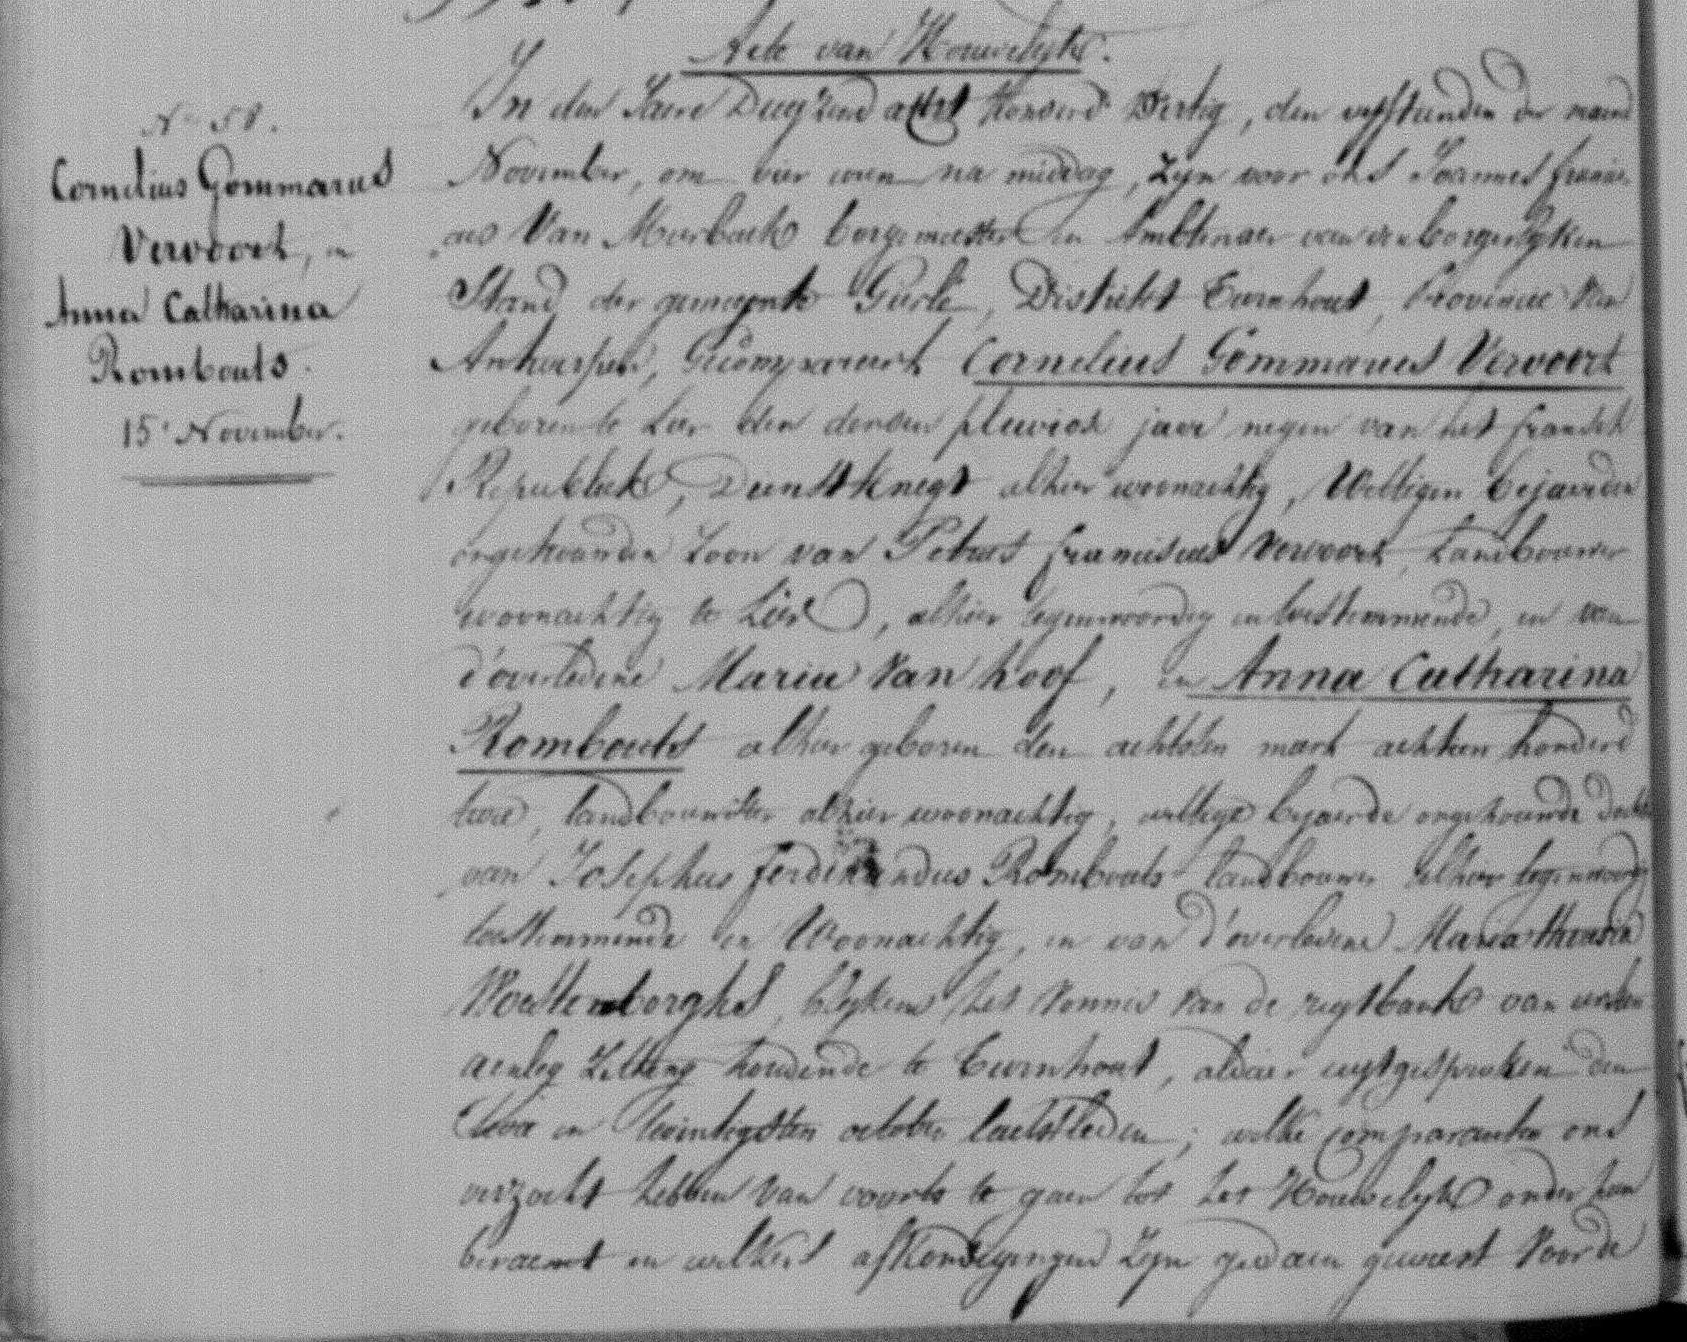 Acte van Houwelyk.
In den Jaere Duyzend acht honderd dertig, den vyfftienden der maend
November, om vier uren na middag, zyn voor ons Joannes Francis
cus Van Meerbeek borgemeester en Ambtenaer van den borgerlyken
Stand der gemeynte Gierle, District Turnhout, Provincie van
Antwerpen, Gecompareert Cornelius Gommarus Vervoort
geboren te Lier den derden pluviose jaer negen van het fransch
Republiek, Dienstknegt alhier woonachtig, Wettigen bejaerden
ongehouwden zoon van Petrus franciscus Vervoort, Landbouwer
woonachtig te Lier, alhier tegenwoordig en toestemmende, en van
d'overledene Maria Van hoof, en Anna Catharina
Rombouts alhier geboren den achtsten mart achtien honderd
twee, landbouwster alhier woonachtig, wettige bejaerde ongehouwde dochter
van Josephus ferdinandus Rombouts landbouwer alhier tegenwoordig
toestemmende en Woonachtig, en van d'overledene Maria theresia
Woestenborghs, blykens het Vonnis van de regtbank van eersten
aenleg zitting houdende te Turnhout, aldaer uytgesproken den
twee en twintigsten october laetstleden; welke comparanten ons
verzocht hebben van voorts te gaen tot het Houwelyk onder hun
beraemt en welkers afkondigingen zyn gedaen geweest Voor de
No 58.
Cornelius Gommarus
Vervoort, en
Anna Catharina
Rombouts.
15 November.